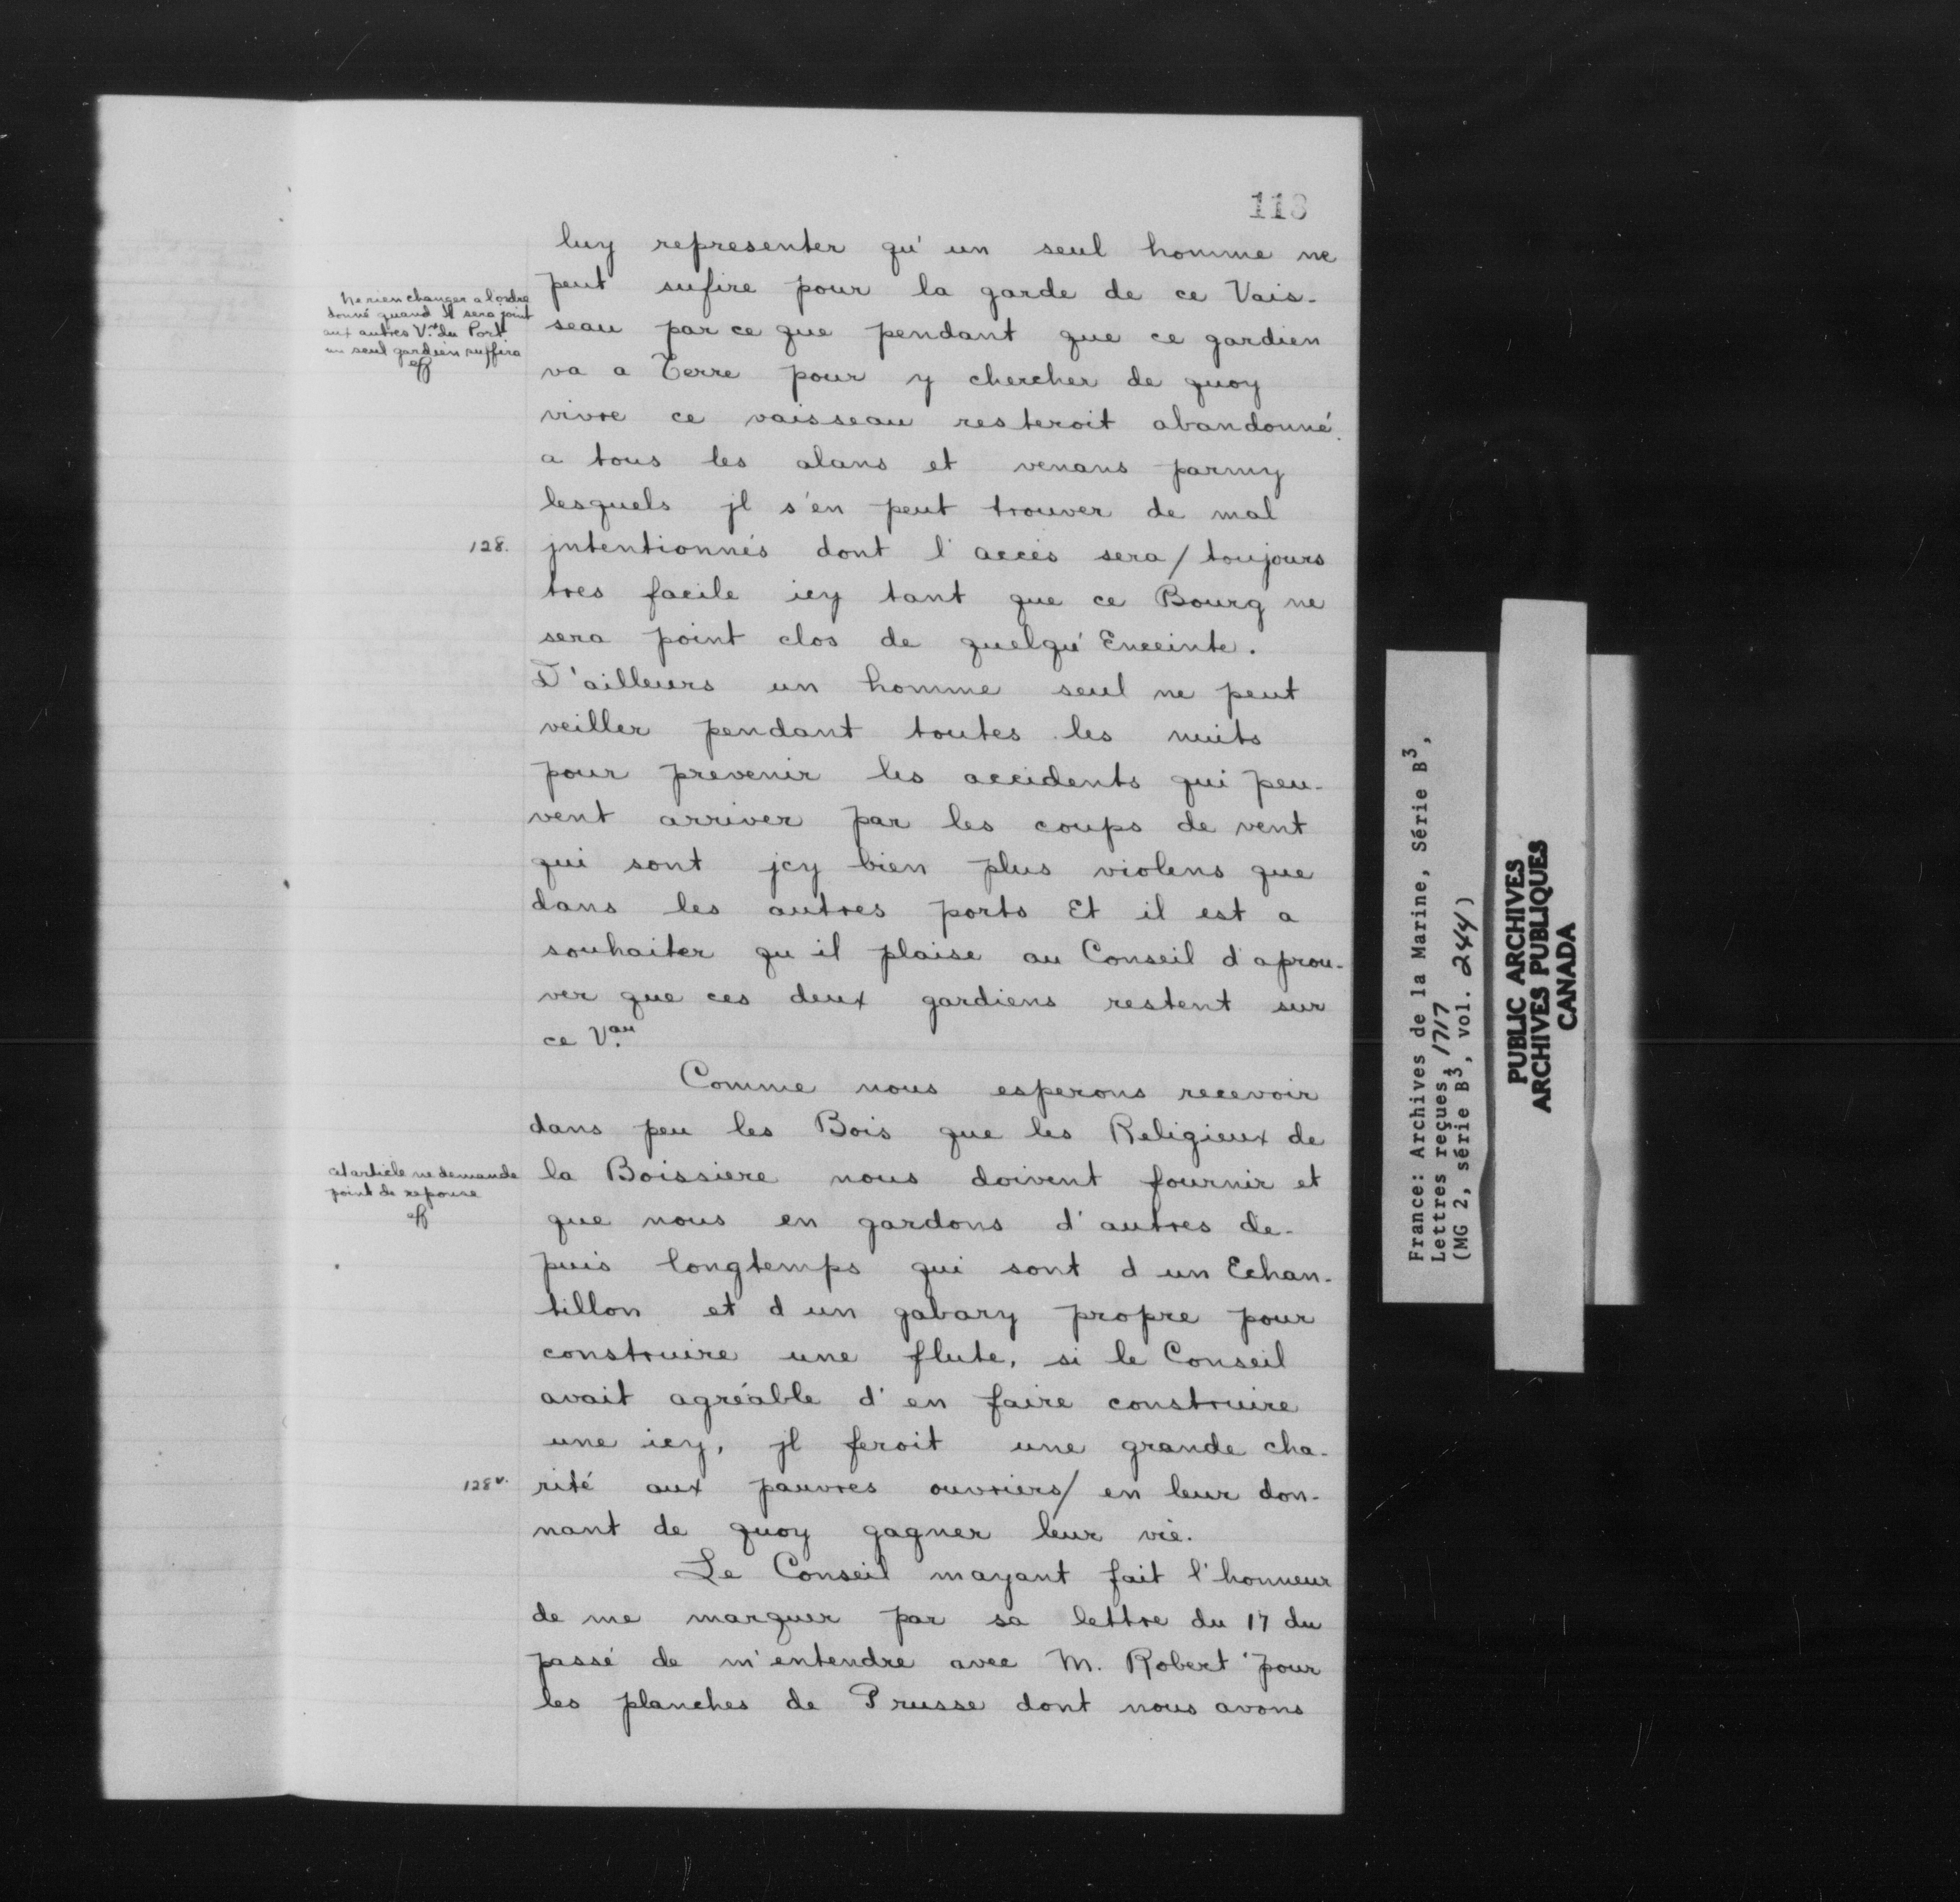 113
luy representer qu'un seul homme ne
peut sufire pour la garde de ce Vais-
seau par ce que pendant que ce gardien
va a Terre pour y chercher de quoy
vivre ce vaisseau resteroit abandonné
a tous les alans et venans parmy
lesquels jl s'en peut trouver de mal
128. jntentionnés dont l'accès sera / toujours
tres facile icy tant que ce Bourg ne
sera point clos de quelqu'Enceinte.
D'ailleurs un homme seul ne peut
veiller pendant toutes les nuits
pour prevenir les accidents qui peu-
vent arriver par les coups de vent
qui sont jcy bien plus violens que
dans les autres ports Et il est a
souhaiter qu il plaise au Conseil d aprou-
ver que ces deux gardiens restent sur
ce V.au
Ne rien changer a l'ordre
donné quand il sera joint
aux autres V.x du Port
un seul gardien suffira
Comme nous esperons recevoir
dans peu les Bois que les Religieux de
la Boissiere nous doivent fournir et
que nous en gardons d'autres de-
puis longtemps qui sont d un Echan-
tillon et d un gabary propre pour
construire une flute, si le Conseil
avait agréable d'en faire construire
une icy, jl feroit une grande cha-
128v. rité aux pauvres ouvriers / en leur don-
nant de quoy gagner leur vie.
cet article ne demande
point de reponse
Le Conseil mayant fait l'honneur
de me marquer par sa lettre du 17 du
passé de m'entendre avec M. Robert pour
les planches de Prusse dont nous avons
France: Archives de la Marine, Série B3,
Lettres reçues, 1717
(MG 2, série B3, vol. 244)
PUBLIC ARCHIVES
ARCHIVES PUBLIQUES
CANADA